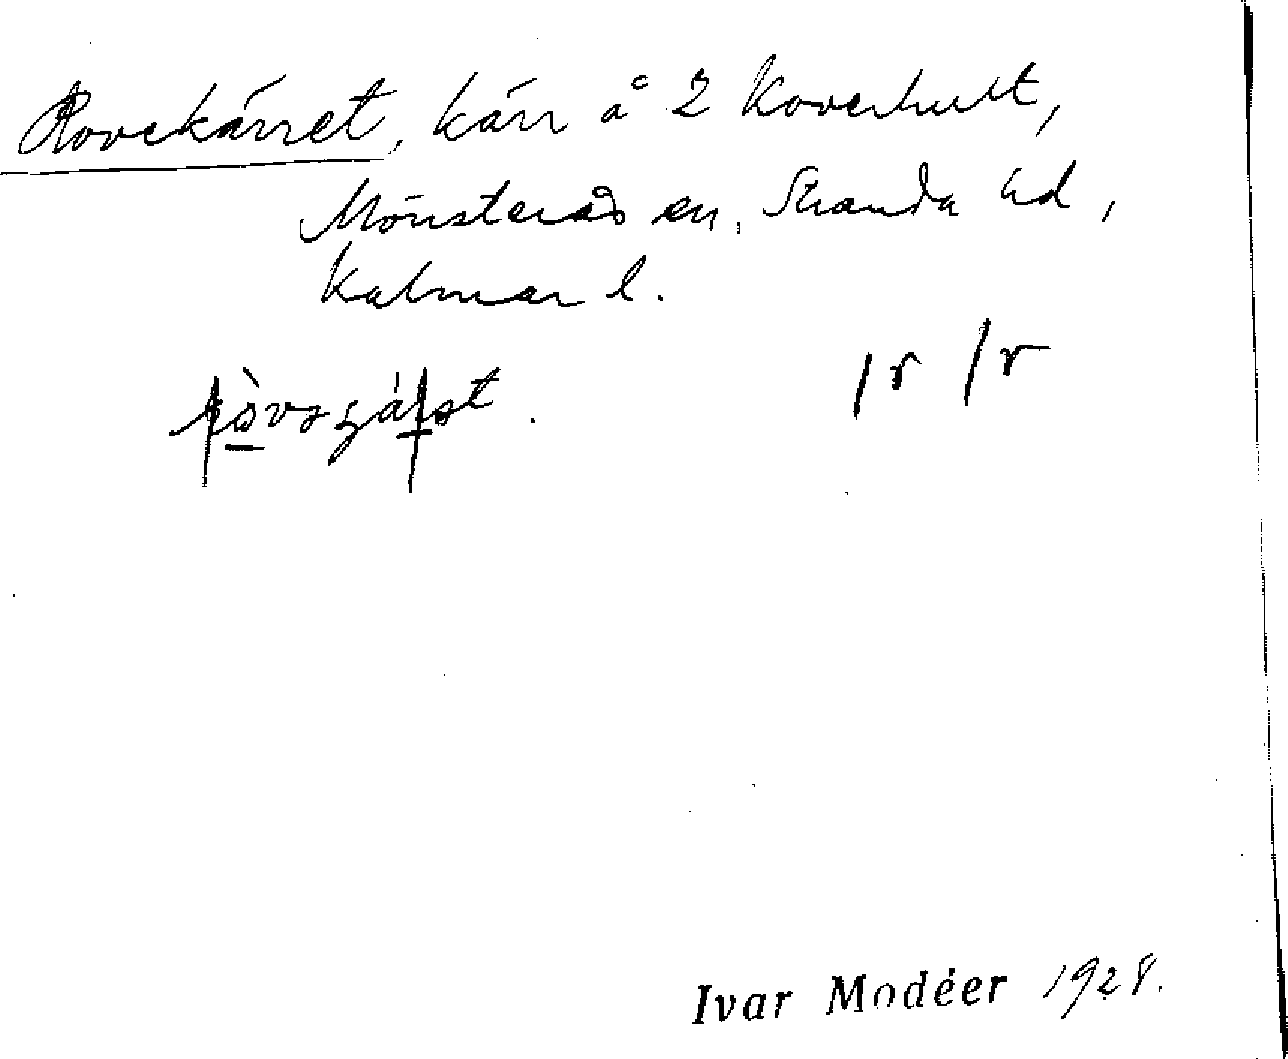 Rovekärret, kärr å 2 Koverhult,
Mönsterås sn, Stranda hd,
Kalmar l.
r r
Ivar Modéer 1928.